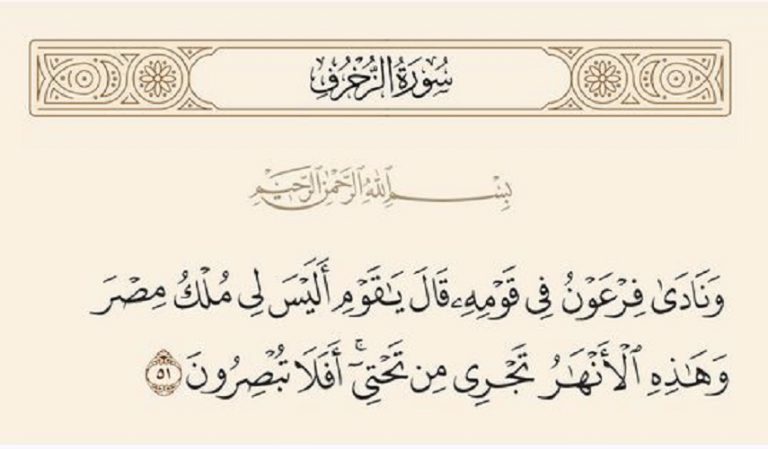 سُورَةُ الزُّخْرُفِ
بِسْمِ اللَّهِ الرَّحْمَٰنِ الرَّحِيمِ
وَنَادَىٰ فِرْعَوْنُ فِي قَوْمِهِۦ قَالَ يَـٰقَوْمِ أَلَيْسَ لِي مُلْكُ مِصْرَ
وَهَـٰذِهِ الْأَنْهَـٰرُ تَجْرِي مِن تَحْتِيٓ ۚ أَفَلَا تُبْصِرُونَ ٥١